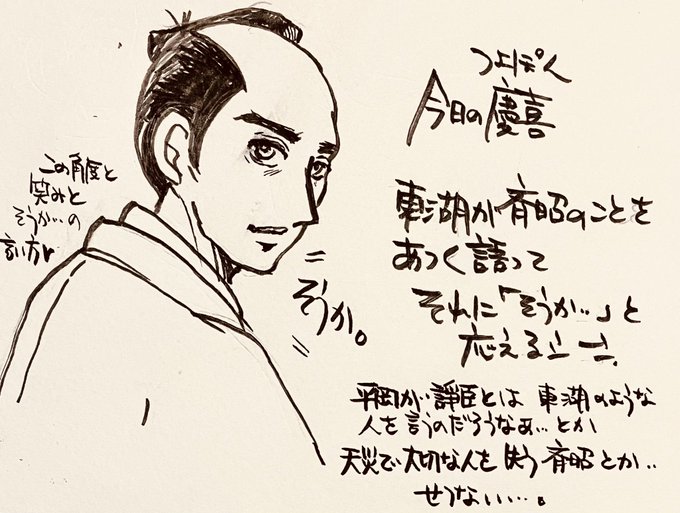 つよぽん
今日の慶喜
東湖が斉昭のことを
あつく語って
それに「そうか‥」と
応えるシーン。
この角度と
笑みと
そうか‥の
言い方♥
そうか。
平岡が諍臣とは 東湖のような
人を言うのだろうなぁ‥とか
天災で大切な人を失う斉昭とか‥
せつない‥‥。